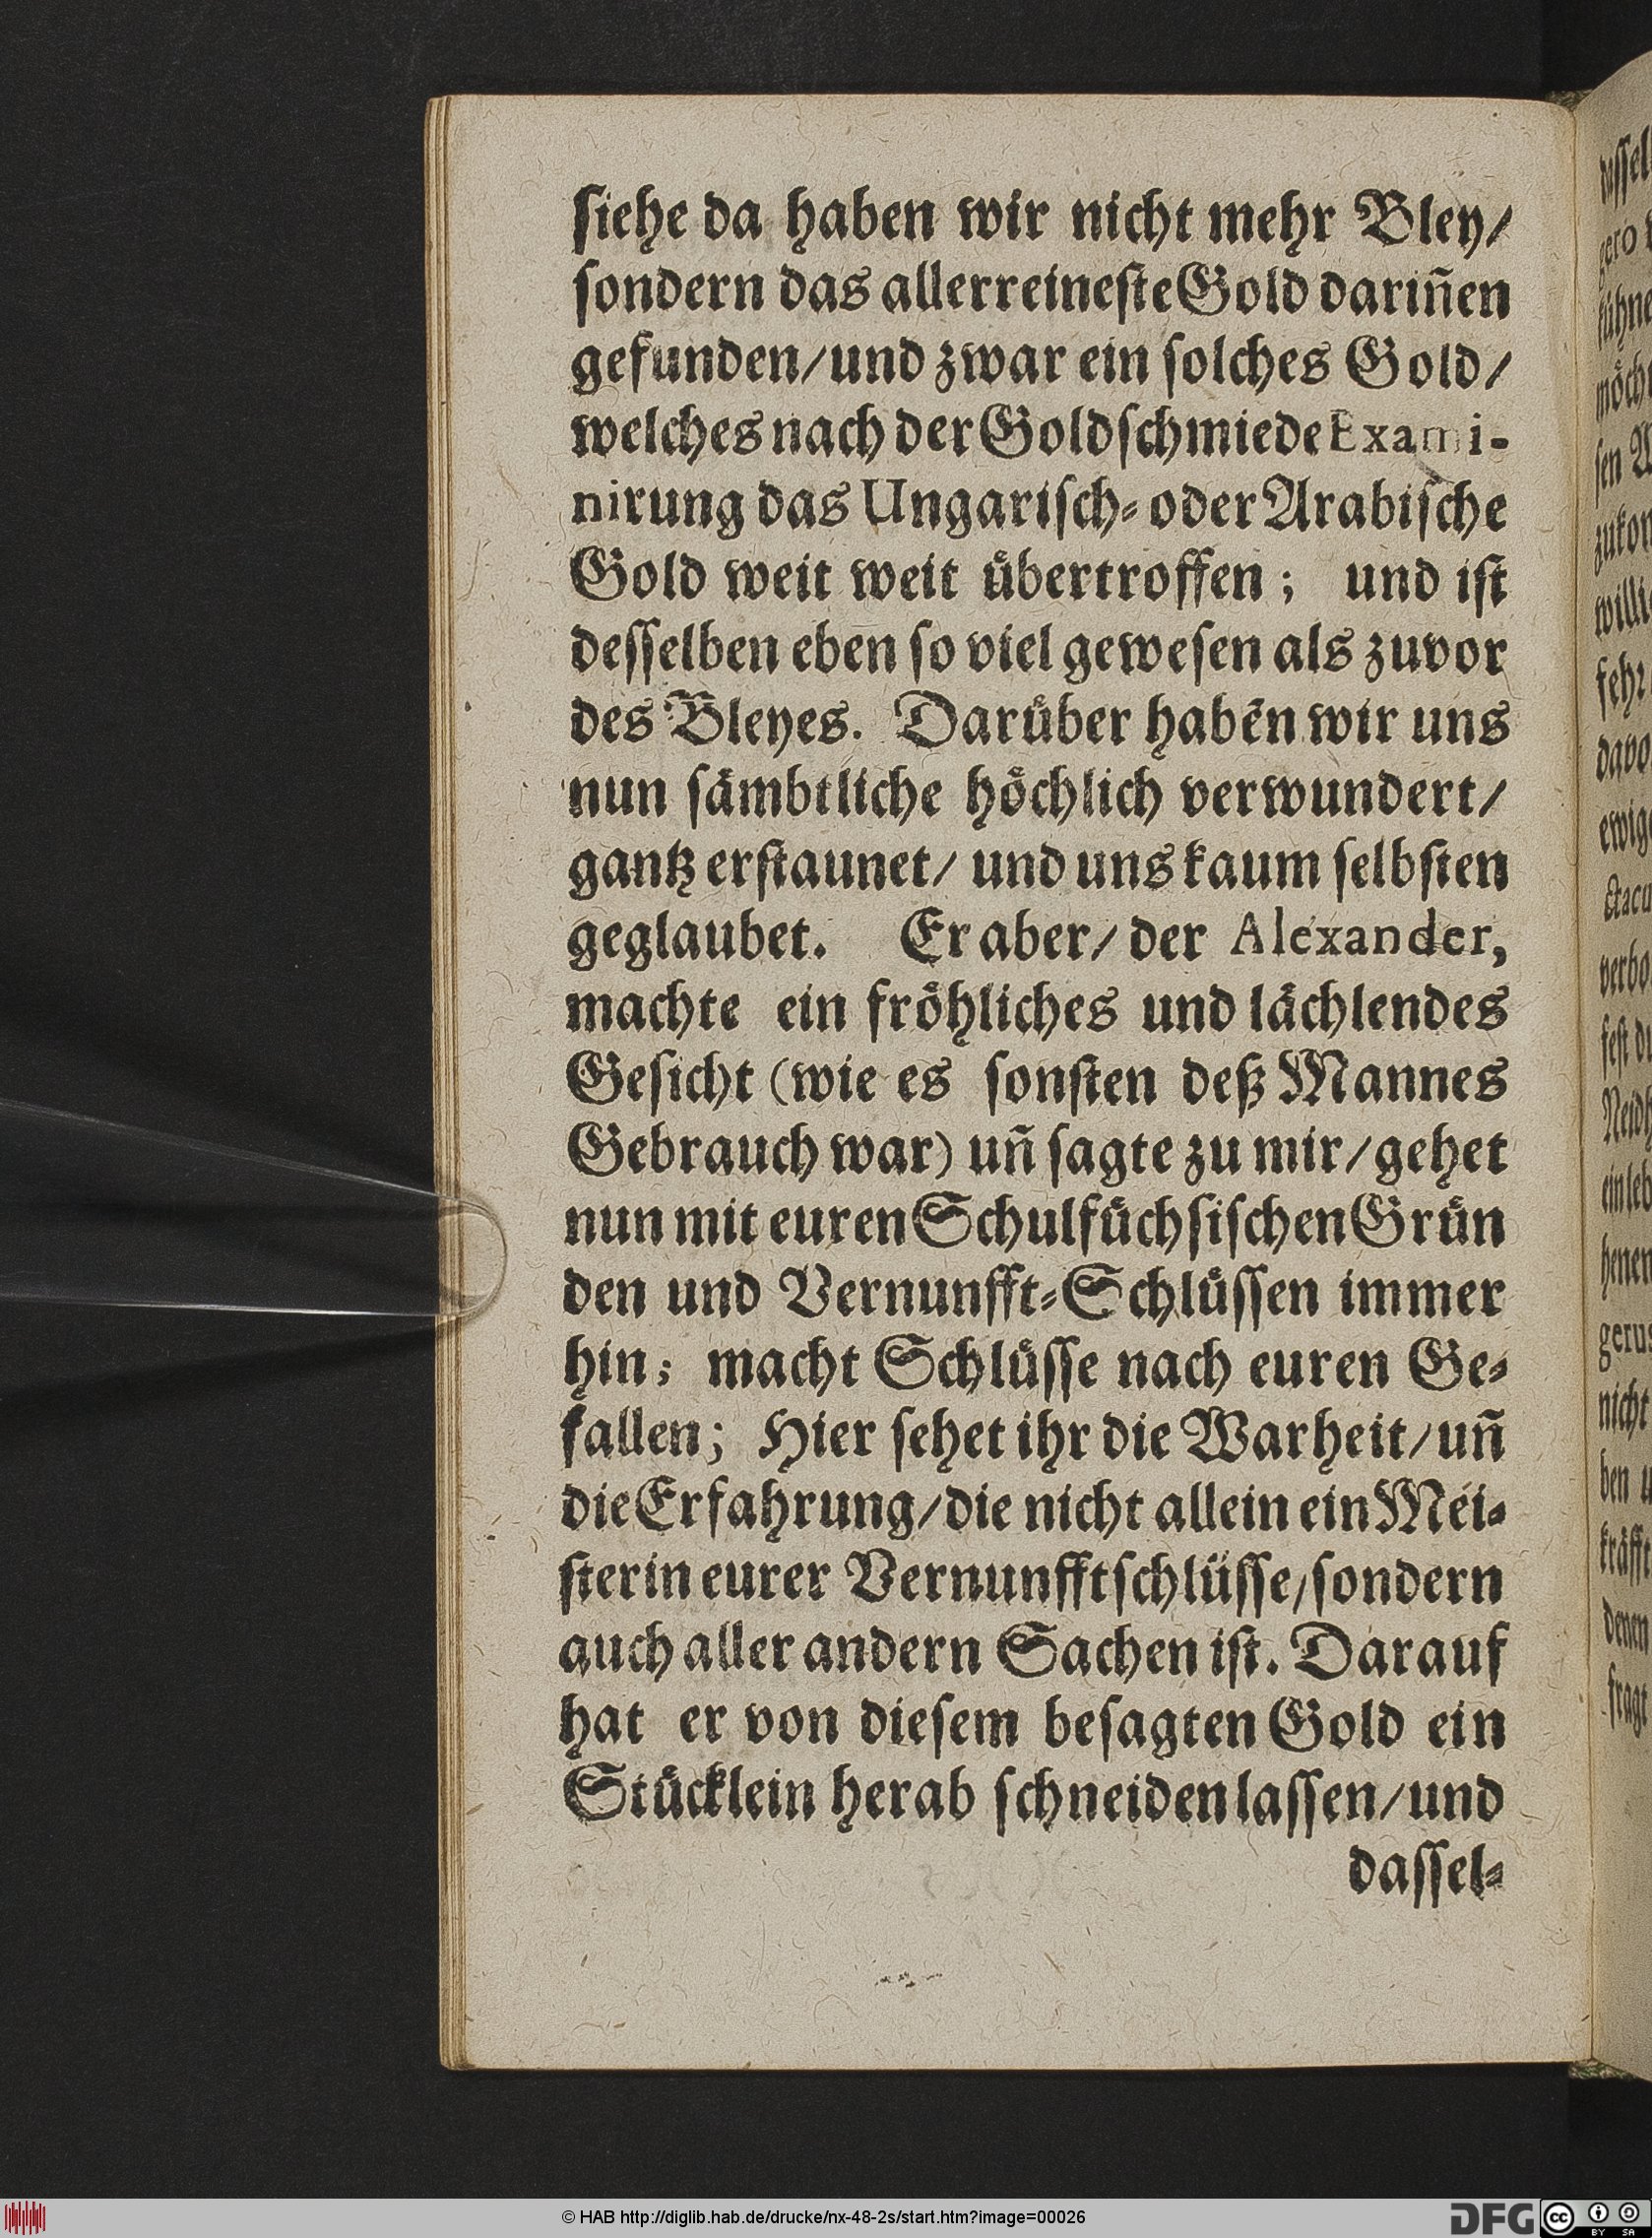 siehe da haben wir nicht mehr Bley/
sondern das allerreineste Gold dariñen
gefunden/ und zwar ein solches Gold/
welches nach der Goldschmiede Exami-
nirung das Ungarisch- oder Arabische
Gold weit weit uͤbertroffen; und ist
desselben eben so viel gewesen als zuvor
des Bleyes. Daruͤber habẽn wir uns
nun saͤmbtliche hoͤchlich verwundert/
gantz erstaunet/ und uns kaum selbsten
geglaubet. Er aber/ der Alexander,
machte ein froͤhliches und laͤchlendes
Gesicht (wie es sonsten deß Mannes
Gebrauch war) uñ sagte zu mir/ gehet
nun mit euren Schulfuͤchsischen Gruͤn
den und Vernunfft-Schluͤssen immer
hin; macht Schluͤsse nach euren Ge-
fallen; Hier sehet ihr die Warheit/ uñ
die Erfahrung/ die nicht allein ein Mei-
sterin eurer Vernunfftschlüsse/ sondern
auch aller andern Sachen ist. Darauf
hat er von diesem besagten Gold ein
Stuͤcklein herab schneiden lassen/ und
dassel-
© HAB http://diglib.hab.de/drucke/nx-48-2s/start.htm?image=00026
DFG
cc
BY SA